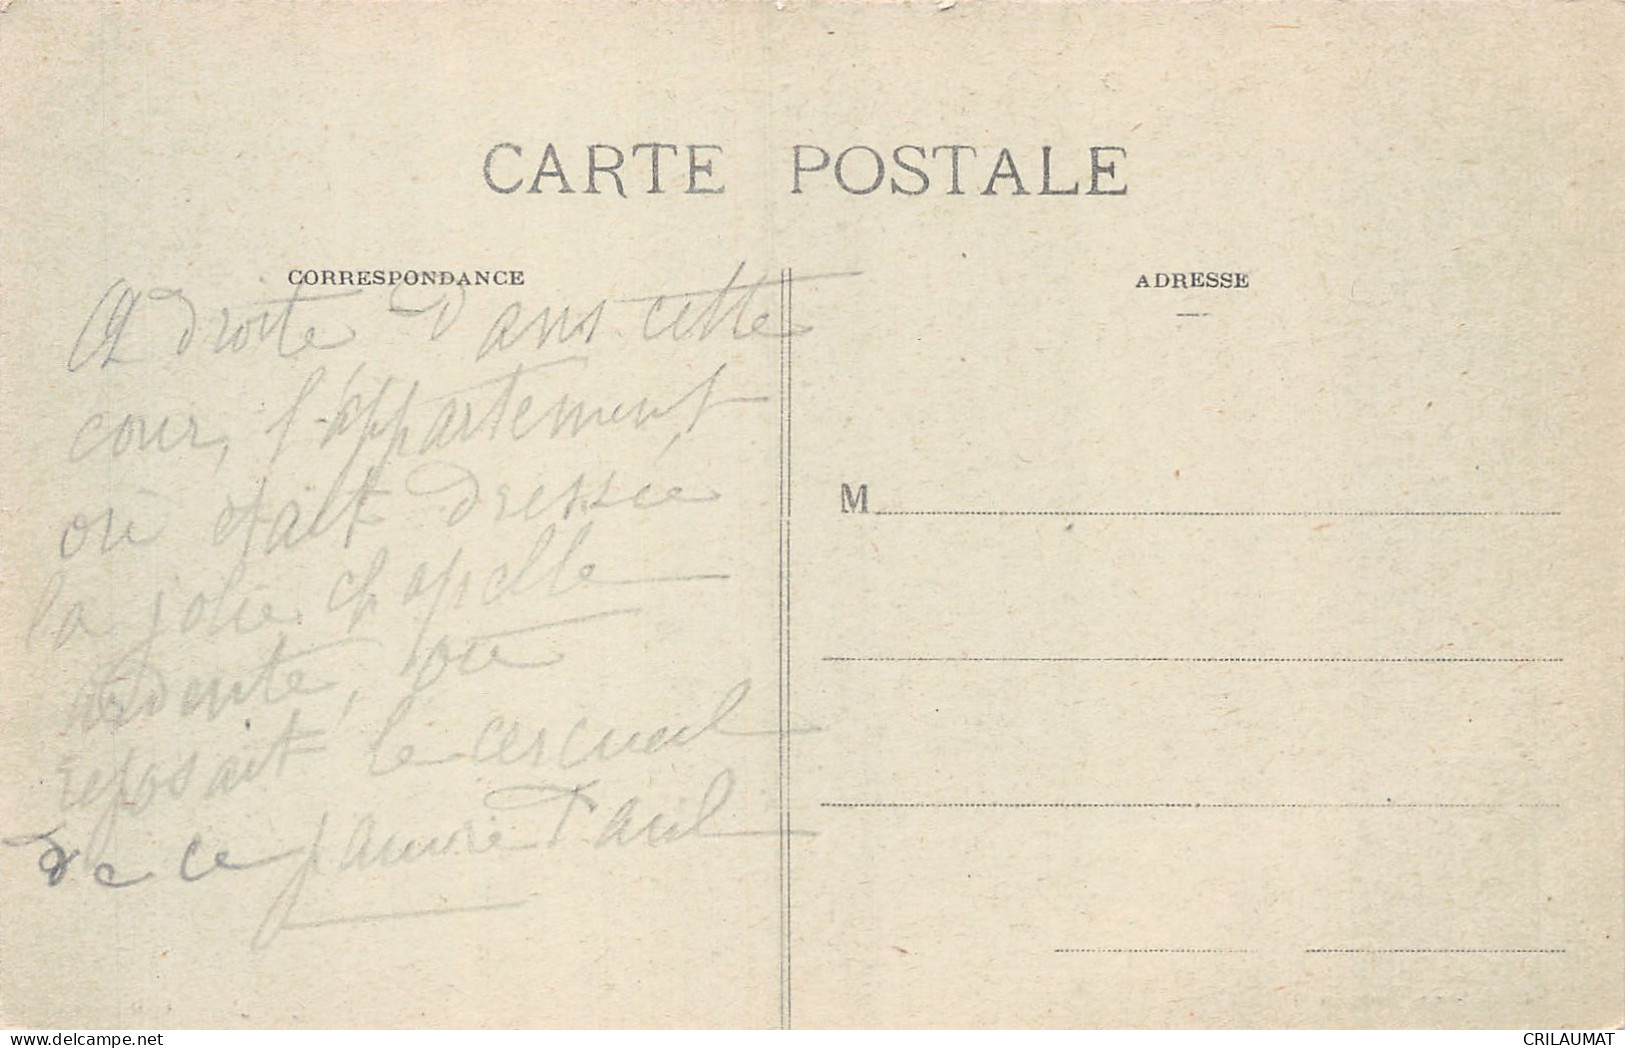 CARTE POSTALE
CORRESPONDANCE
ADRESSE
A droite dans cette
cour, l'appartement
où était dressée
la jolie chapelle
ardente, où
reposait le cercueil
de ce pauvre Paul
M
delcampe.net
CRILAUMAT